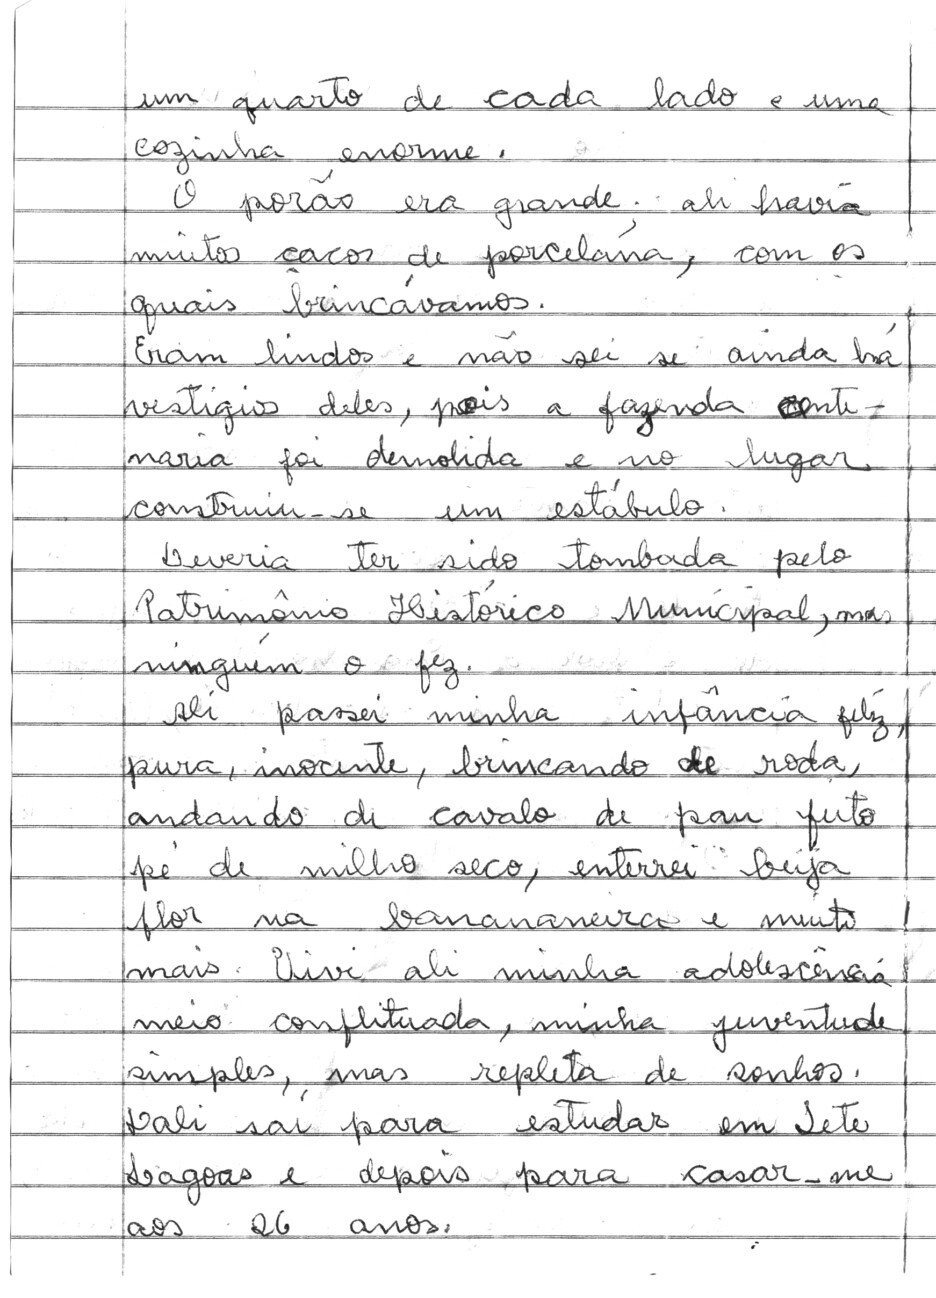 um quarto de cada lado e uma
cozinha enorme.
O porão era grande. ali havia
muitos cacos de porcelana, com os
quais brincávamos.
Eram lindos e não sei se ainda há
vestígios deles, pois a fazenda cente-
nária foi demolida e no lugar
construiu-se um estábulo.
Deveria ter sido tombada pelo
Patrimônio Histórico Municipal, mas
ninguém o fez.
Ali passei minha infância feliz,
pura, inocente, brincando de roda,
andando de cavalo de pau feito
pé de milho seco, enterrei beija
flor na banananeira e muito
mais. Vivi ali minha adolescência
meio conflituada, minha juventude
simples, mas repleta de sonhos.
Dali saí para estudar em Sete
Lagoas e depois para casar-me
aos 26 anos.